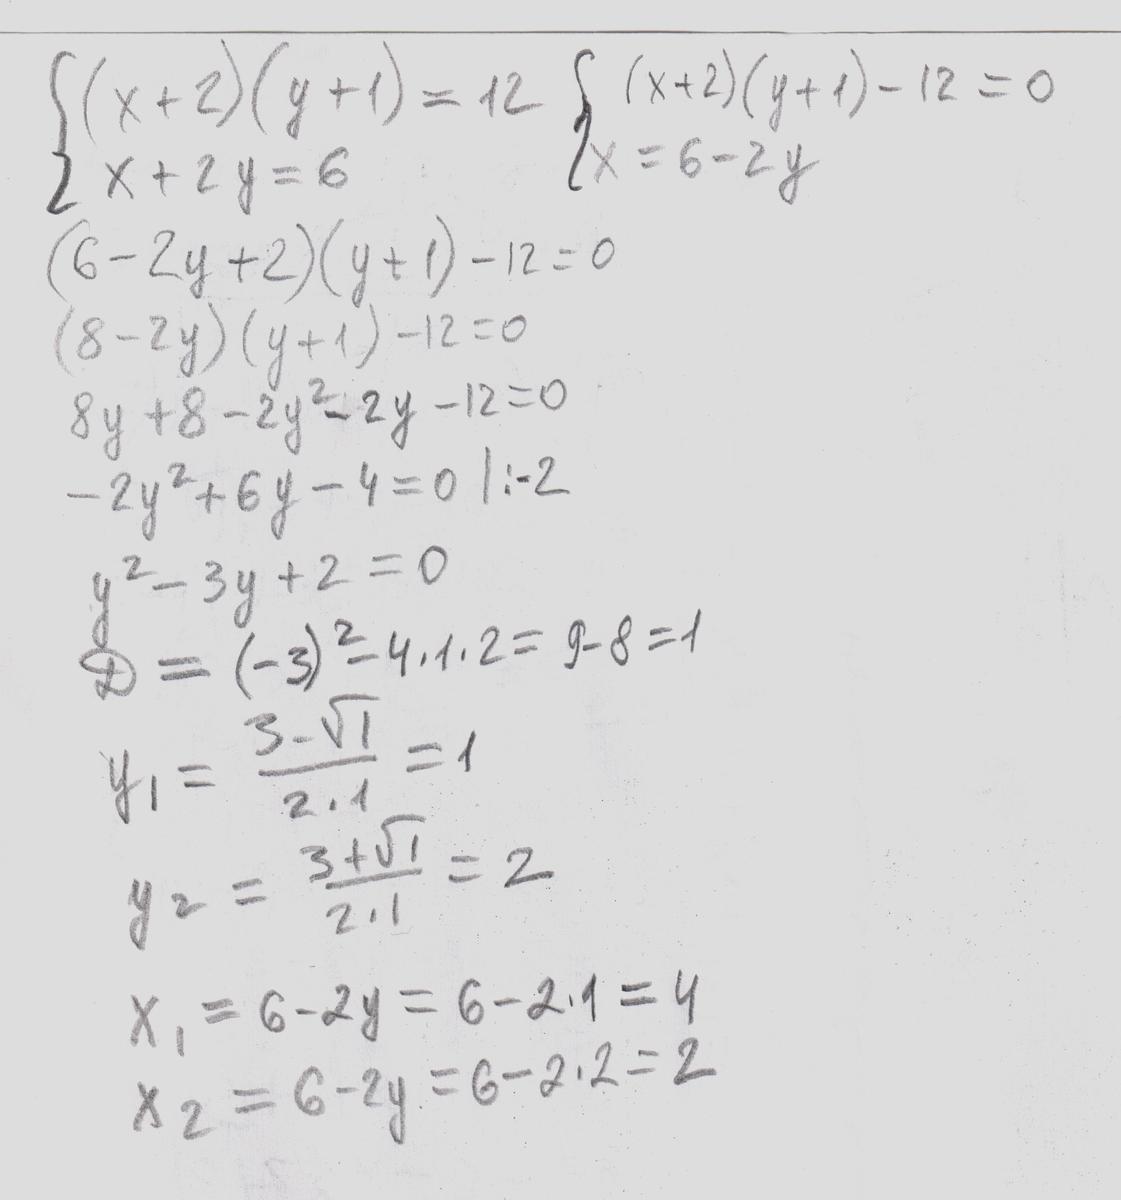 {(x+2)(y+1)=12 {(x+2)(y+1)-12=0
x+2y=6 x=6-2y
(6-2y+2)(y+1)-12=0
(8-2y)(y+1)-12=0
8y+8-2y²-2y-12=0
-2y²+6y-4=0 |:-2
y²-3y+2=0
D=(-3)²-4·1·2=9-8=1
y₁=(3-√1)/(2·1)=1
y₂=(3+√1)/(2·1)=2
x₁=6-2y=6-2·1=4
x₂=6-2y=6-2·2=2